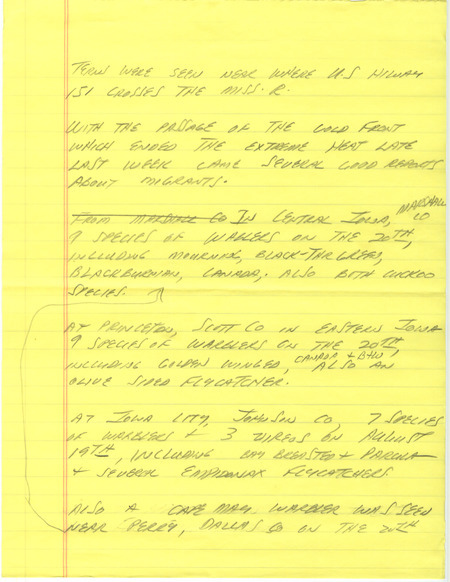 TERN WERE SEEN NEAR WHERE U.S HIWAY
151 CROSSES THE MISS. R.
WITH THE PASSAGE OF THE COLD FRONT
WHICH ENDED THE EXTREME HEAT LATE
LAST WEEK CAME SEVERAL GOOD REPORTS
ABOUT MIGRANTS.
FROM MARSHALL CO IN CENTRAL IOWA, MARSHALL CO
9 SPECIES OF WARBLERS ON THE 20TH,
INCLUDING MOURNING, BLACK-THR GREEN,
BLACKBURNIAN, CANADA,. ALSO BOTH CUCKOO
SPECIES.
AT PRINCETON, SCOTT CO IN EASTERN IOWA
9 SPECIES OF WARBLERS ON THE 20TH,
INCLUDING GOLDEN WINGED, CANADA + B+W, ALSO AN
OLIVE SIDED FLYCATCHER.
AT IOWA CITY, JOHNSON CO, 7 SPECIES
OF WARBLERS + 3 VIREOS ON AUGUST
19TH, INCLUDING BAY BREASTED + PARULA
+ SEVERAL EMPIDONAX FLYCATCHERS.
ALSO A CAPE MAY WARBLER WAS SEEN
NEAR PERRY, DALLAS CO ON THE 20TH